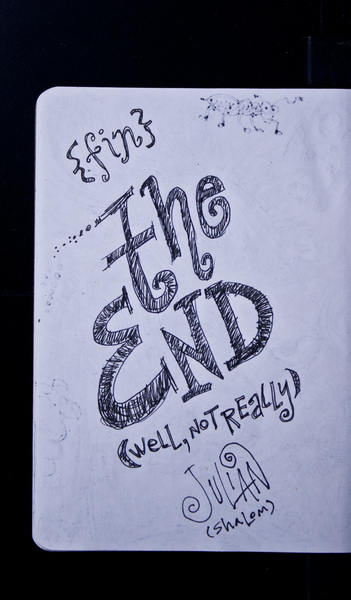 {fin}
the
END
(well, NOT REALLY)
JULIAN
(shalom)